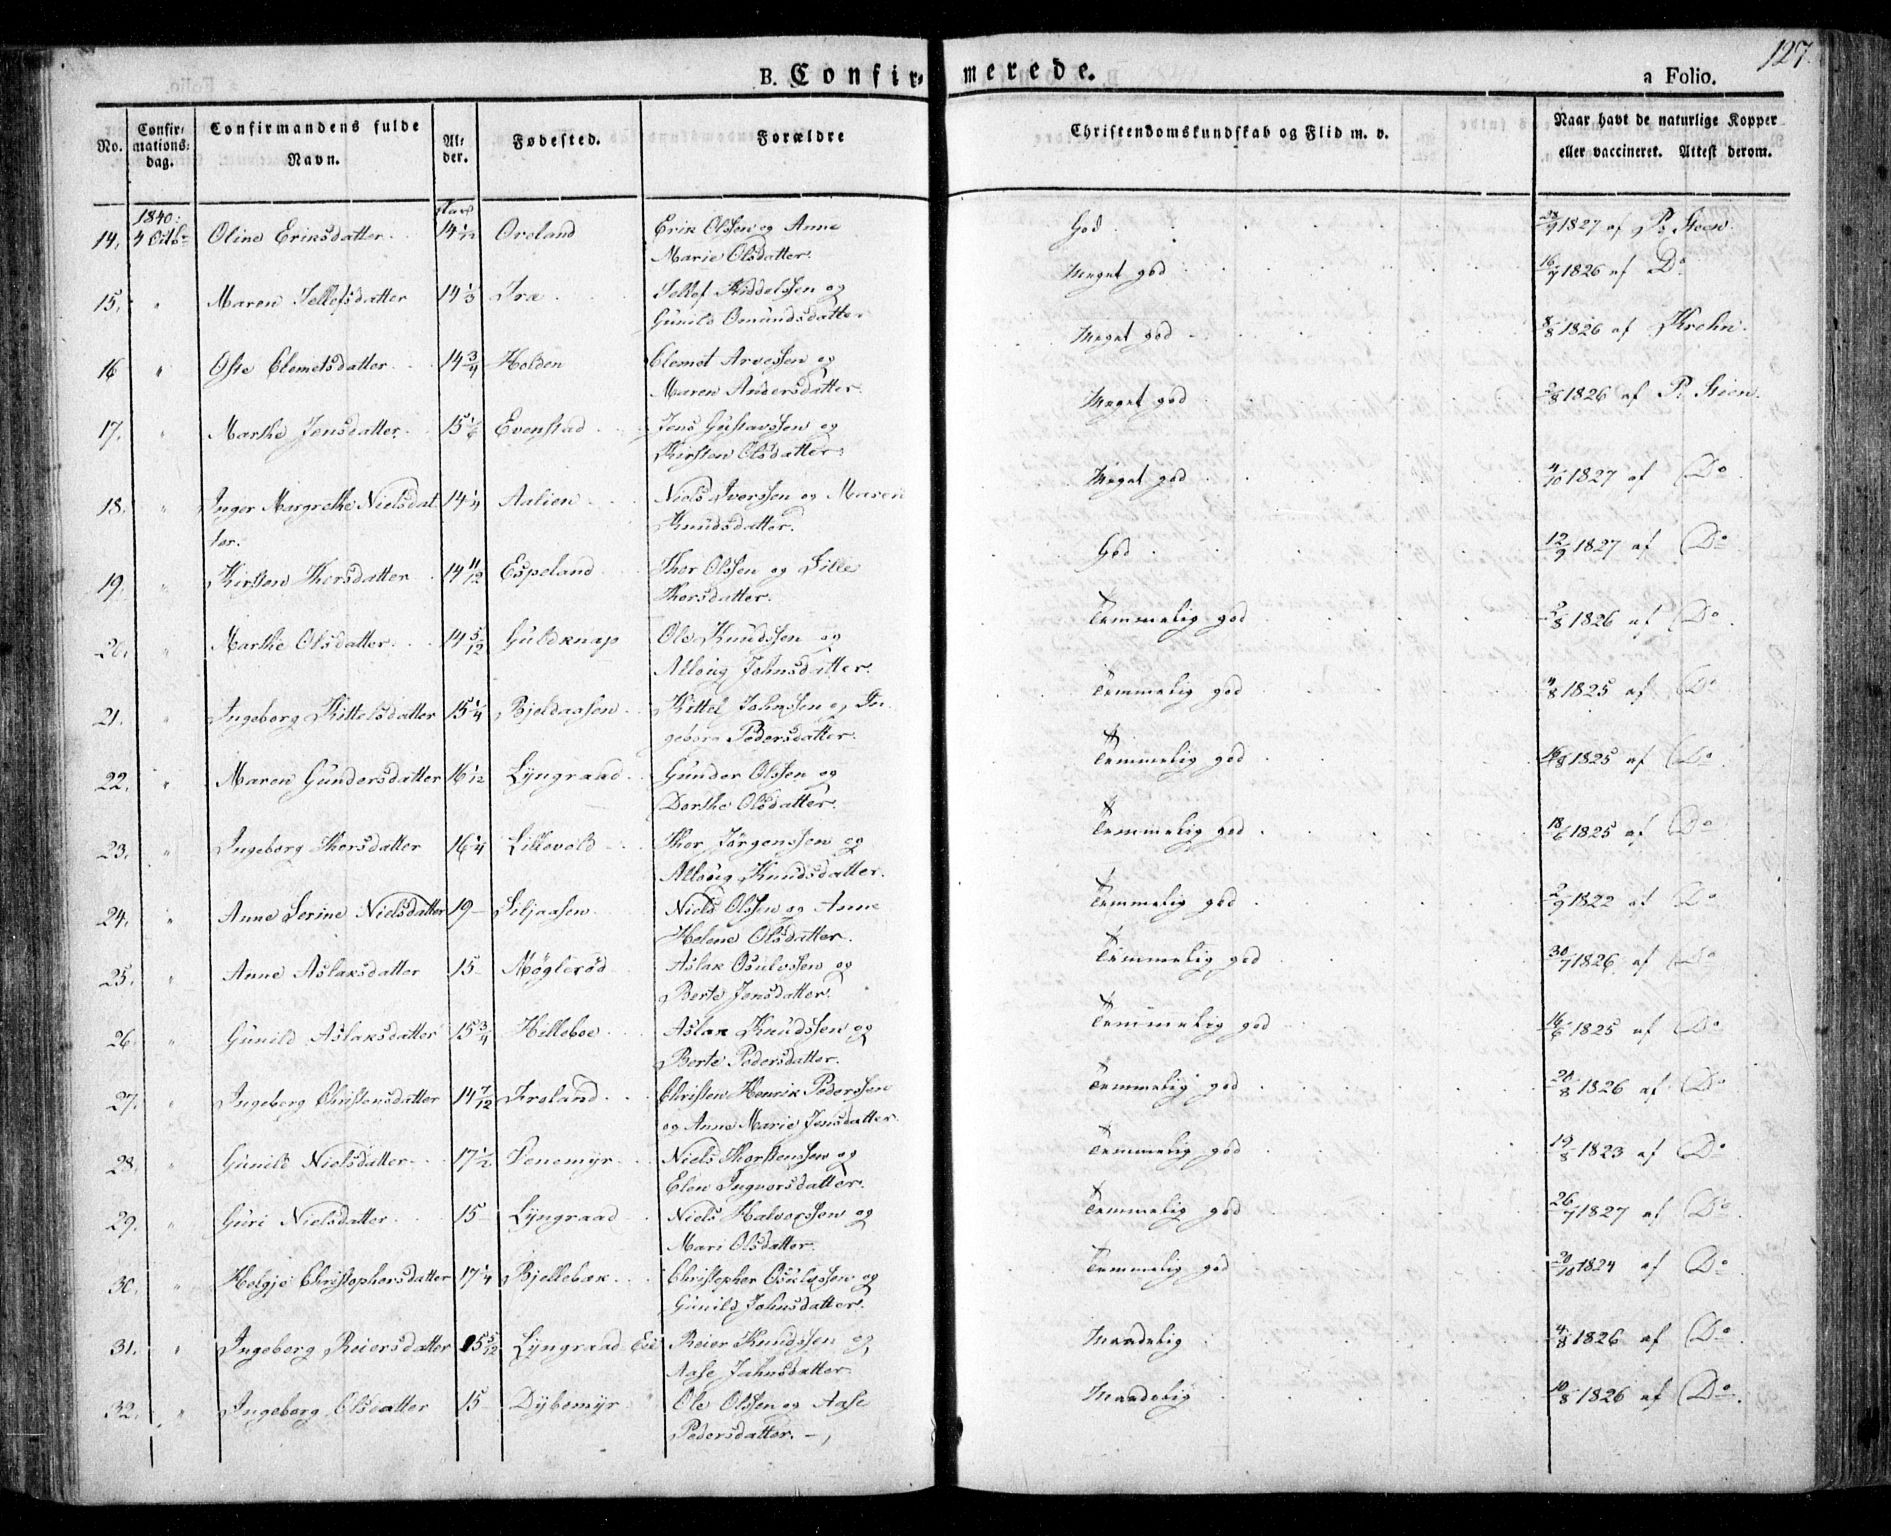 127.
B. Confirmerede.
a Folio.
No.
Confir-
mations-
dag.
Confirmandens fulde
Navn.
Al-
der.
Fødested.
Forældre
Christendomskundskab og Flid m. v.
Naar havt de naturlige Kopper
eller vaccineret. Attest derom.
1840.
14. 4 Octbr Oline Eriksdatter 14 1/12 Oveland Erik Olssen og Anne God 1827 af P. Steen
Marie Olsdatter.
15. " Maren Tellefsdatter 14 1/3 Træ Tellef Niddelssen og Meget god 16/7 1826 af Do
Gunild Osmundsdatter
16 " Oste Clemetsdatter 14 3/4 Holden Clemet Arvessen og Meget god 8/8 1826 af Krehn.
Maren Andersdatter.
17. " Marthe Jensdatter. 15 1/6 Evenstad Jens Gustavssen og Meget god 2/8 1826 af P. Steen.
Kirsten Olsdatter.
18. " Inger Margrethe Nielsdat 14 1/4 Aalien Niels Iverssen og Maren Meget god 4/10 1827 af Do
ter. Knudsdatter.
19. " Kirsten Thorsdatter 14 11/12 Espeland Thor Olssen og Sille God 12/9 1827 af Do
Thorsdatter.
20. " Marthe Olsdatter 14 5/12 Guldknap Ole Knudssen og Temmelig god 2/8 1826 af Do
Alloug Johnsdatter.
21. " Ingeborg Kittelsdatter 15 1/4 Bjeldaasen Kittel Johnssen og In- Temmelig god 4/8 1825 af Do
geborg Pedersdatter.
22. " Maren Gundersdatter 16 1/12 Lyngraad Gunder Olssen og Temmelig god 16/8 1825 af Do
Dorthe Olsdatter.
23. " Ingeborg Thorsdatter 16 1/4 Lillevold Thor Jørgenssen og Temmelig god 18/6 1825 af Do
Alloug Knudsdatter.
24. " Anne Serine Nielsdatter 19 Siljaasen Niels Olssen og Anne Temmelig god 2/9 1822 af Do
Helene Olsdatter.
25. " Anne Aslaksdatter 15 Møglerød Aslak Osulvssen og Temmelig god 30/7 1826 af Do
Berte Jensdatter.
26. " Gunild Aslaksdatter 15 3/4 Hilleboe Aslak Knudssen og Temmelig god 16/6 1825 af Do
Berte Pedersdatter.
27. " Ingeborg Christensdatter 14 7/12 Froland Christen Henrik Pederssen Temmelig god 20/8 1826 af Do
og Anne Marie Jensdatter.
28. " Gunild Nielsdatter 17 1/2 Denemyr Niels Thorstenssen og Temmelig god 19/8 1823 af Do
Elen Ingvorsdatter.
29. " Guri Nielsdatter 15 Lyngraad Niels Halvorssen og Temmelig god 26/7 1827 af Do
Mari Olsdatter.
30. " Helgje Christophersdatter 17 1/4 Bjellebæk Christopher Osulvssen og Temmelig god 20/10 1824 af Do
Gunild Johnsdatter.
31. " Ingeborg Reiersdatter 15 5/12 Lyngraad Eie Reier Knudssen og Maadelig 4/8 1826 af Do
Aase Jahnsdatter
32. " Ingeborg Olsdatter 15 Dybemyr Ole Olssen og Aase Maadelig 10/8 1826 af Do
Pedersdatter.